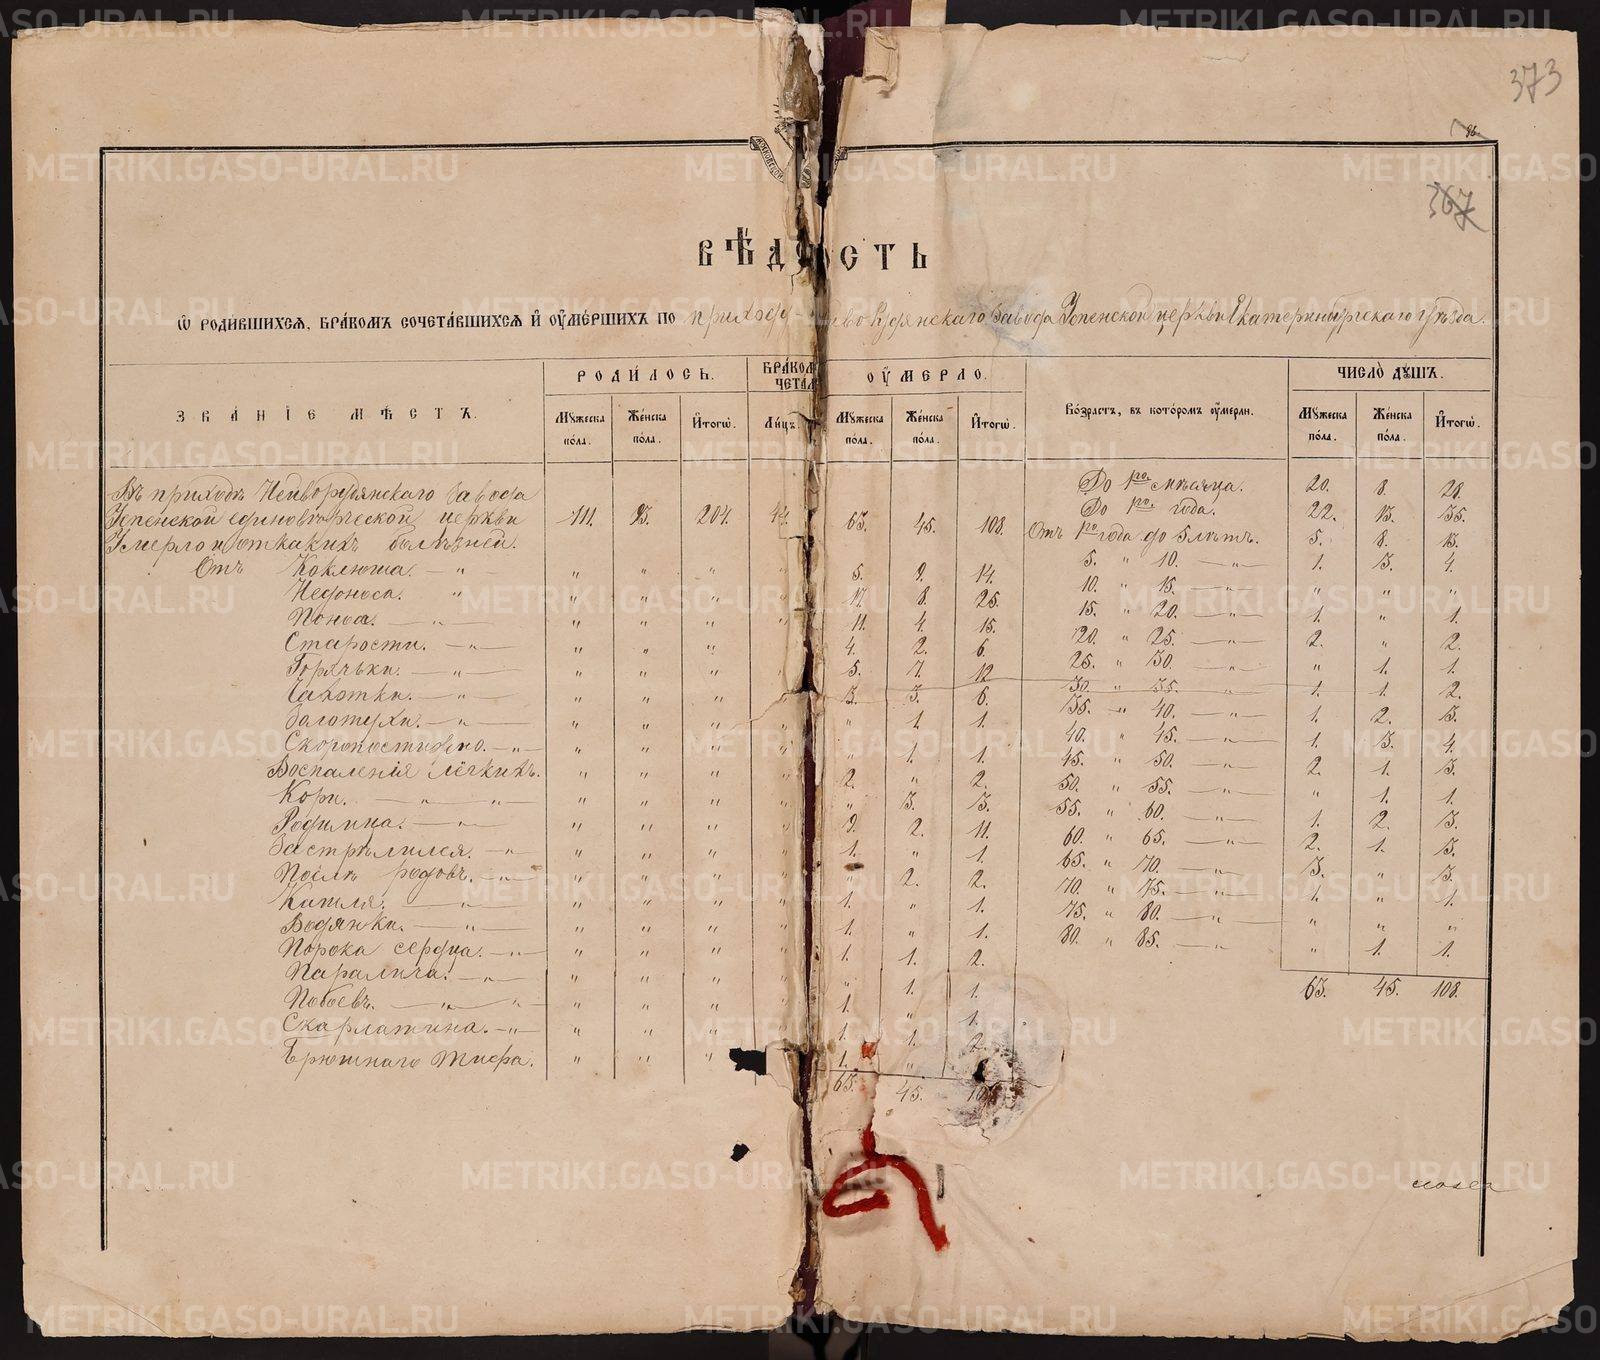 373
86
367
ВѢДОСТЬ
Ѡ РОДИВШИХСЯ, БРАКОМЪ СОЧЕТАВШИХСЯ И ОУМЕРШИХЪ ПО приходу Нейворудянскаго завода Успенской церкви Екатеринбургскаго уѣзда.
ЗВАНІЕ МѢСТЪ. РОДИЛОСЬ. БРАКОМ ЧЕТАЛ ОУМЕРЛО. Возрастъ, въ которомъ оумерли. ЧИСЛО ДУШЪ.
Мужеска пола. Женска пола. Итогѡ. Лицъ. Мужеска пола. Женска пола. Итогѡ. Мужеска пола. Женска пола. Итогѡ.
Въ приходѣ Нейворудянскаго завода
Успенской единовѣрческой церкви 111. 93. 204. 44. 63. 45. 108.
Умерло и отъ какихъ болѣзней.
Отъ Коклюша. — " " " " " 5. 9. 14.
Недоноса. " " " " " 17. 8. 25.
Поноса. — " — " " " " 11. 4. 15.
Старости. — " — " " " " 4. 2. 6.
Горячьки. — " — " " " " 5. 7. 12
Чахотки. — " — " " " " 3. 3. 6.
Золотухи. — " — " " " " " 1. 1.
Скоропостижно. — " — " " " " " 1. 1.
Воспаленія лёгкихъ. " " " " 2. " 2.
Кори. — " — " — " " " " " 3. 3.
Родимца. — " — " " " " 9. 2. 11.
Застрѣлился. — " — " " " " 1. " 1.
Послѣ родовъ. — " — " " " " " 2. 2.
Кашля. — " — " " " " 1. " 1.
Водянки. — " — " " " " 1. " 1.
Порока сердца. — " — " " " " 1. 1. 2.
Паралича. — " — " " " " " 1. 1.
Побоевъ. — " — " — " " " " 1. " 1.
Скарлатина. — " — " " " " 1. 1. 2.
Брюшнаго тифа. " " " 1. "
63. 45. 108
До 1го мѣсяца. 20. 8. 28.
До 1го года. 22. 13. 35.
Отъ 1го года до 5 лѣтъ. 5. 8. 13.
5. " 10. — " — 1. 3. 4.
10. " 15. — " — " " "
15. " 20. — " — 1. " 1.
20. " 25. — " — 2. " 2.
25. " 30. — " — " 1. 1.
30. " 35. — " — 1. 1. 2.
35. " 40. — " — 1. 2. 3.
40. " 45. — " — 1. 3. 4.
45. " 50. — " — 2. 1. 3.
50. " 55. — " — " 1. 1.
55. " 60. — " — 1. 2. 3.
60. " 65. — " — 2. 1. 3.
65. " 70. — " — 3. " 3.
70. " 75. — " — 1. " 1.
75. " 80. — " — " " "
80. " 85. — " " 1. 1.
63. 45. 108.
METRIKI.GASO-URAL.RU